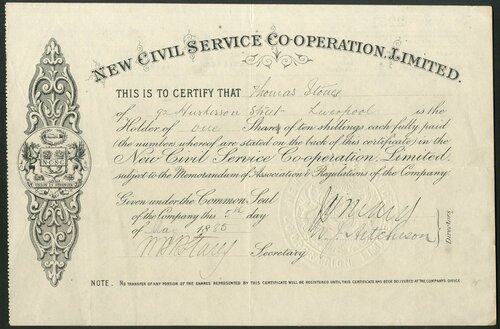 NEW CIVIL SERVICE CO-OPERATION, LIMITED.
THIS IS TO CERTIFY THAT Thomas Stones
of 92 Street Liverpool is the
Holder of one Share of ten shillings each fully paid
(the number whereof are stated on the back of this certificate) in the
New Civil Service Co-operation, Limited,
subject to the Memorandum of Association & Regulations of the Company.
Given under the Common Seal
of the Company this 5th day
of May 1885
Directors
Secretary
N.C.S.C.
NOTE. NO TRANSFER OF ANY PORTION OF THE SHARES REPRESENTED BY THIS CERTIFICATE WILL BE REGISTERED UNTIL THIS CERTIFICATE HAS BEEN DELIVERED AT THE COMPANY'S OFFICE.